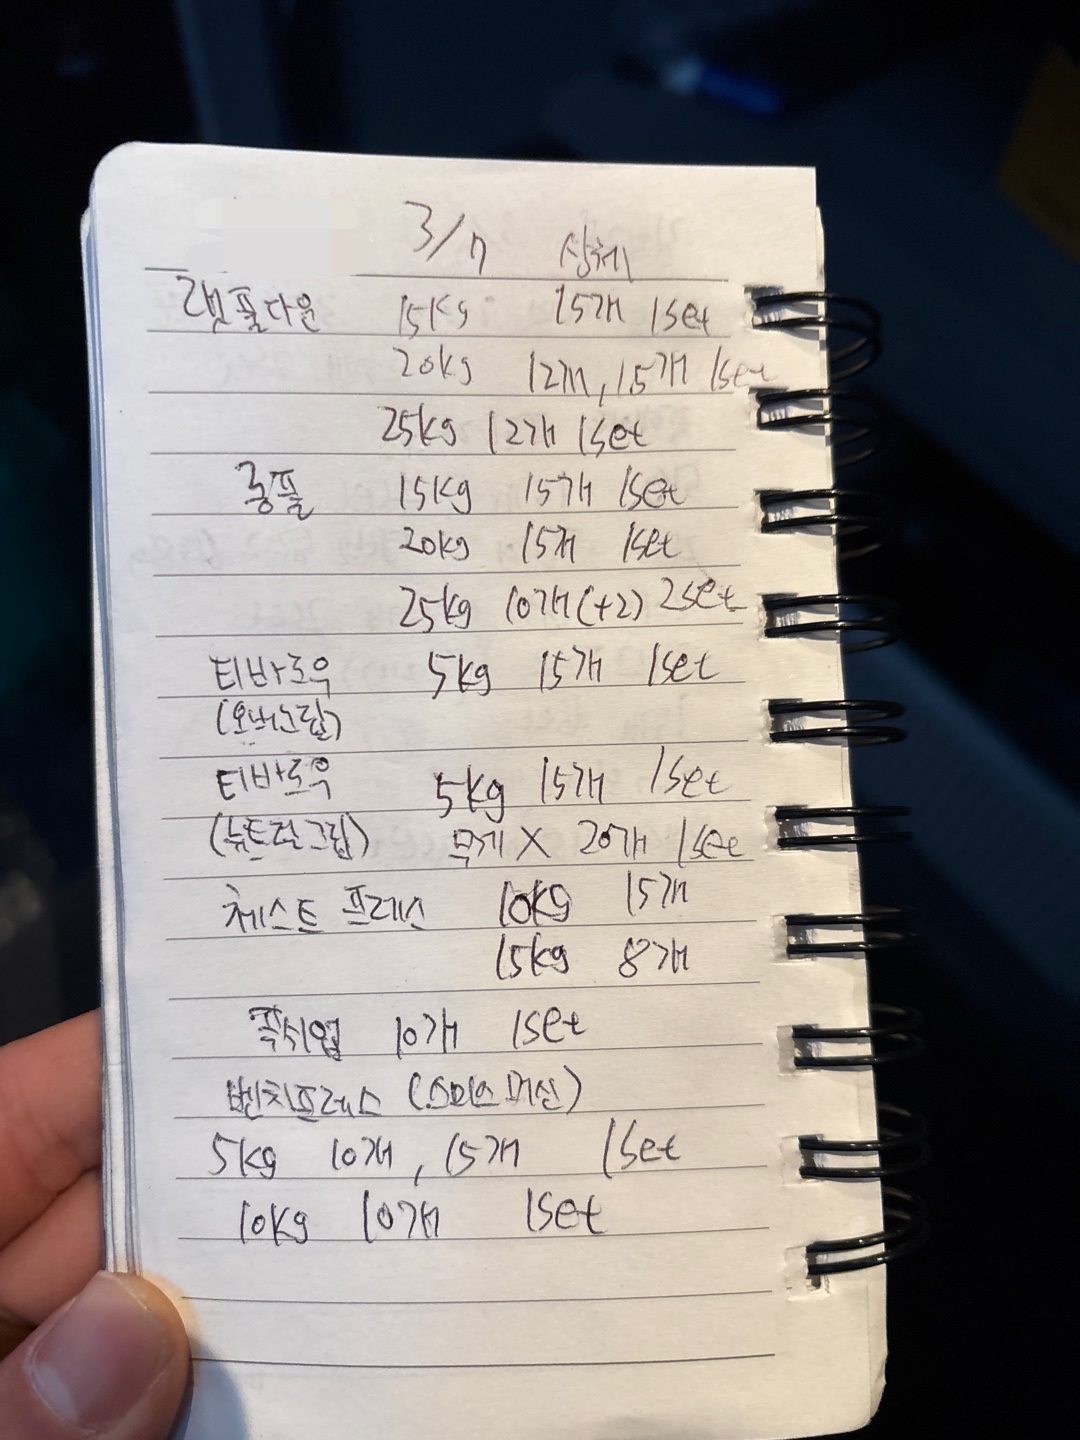 3/7 상체
랫풀다운 15kg 15개 1set
20kg 12개, 15개 1set
25kg 12개 1set
롱풀 15kg 15개 1set
20kg 15개 1set
25kg 10개(+2) 2set
티바로우 5kg 15개 1set
(오버그립)
티바로우 5kg 15개 1set
(뉴트럴그립) 무게X 20개 1set
체스트 프레스 10kg 15개
15kg 8개
푹쉬업 10개 1set
벤치프레스 (스미스머신)
5kg 10개, 15개 1set
10kg 10개 1set